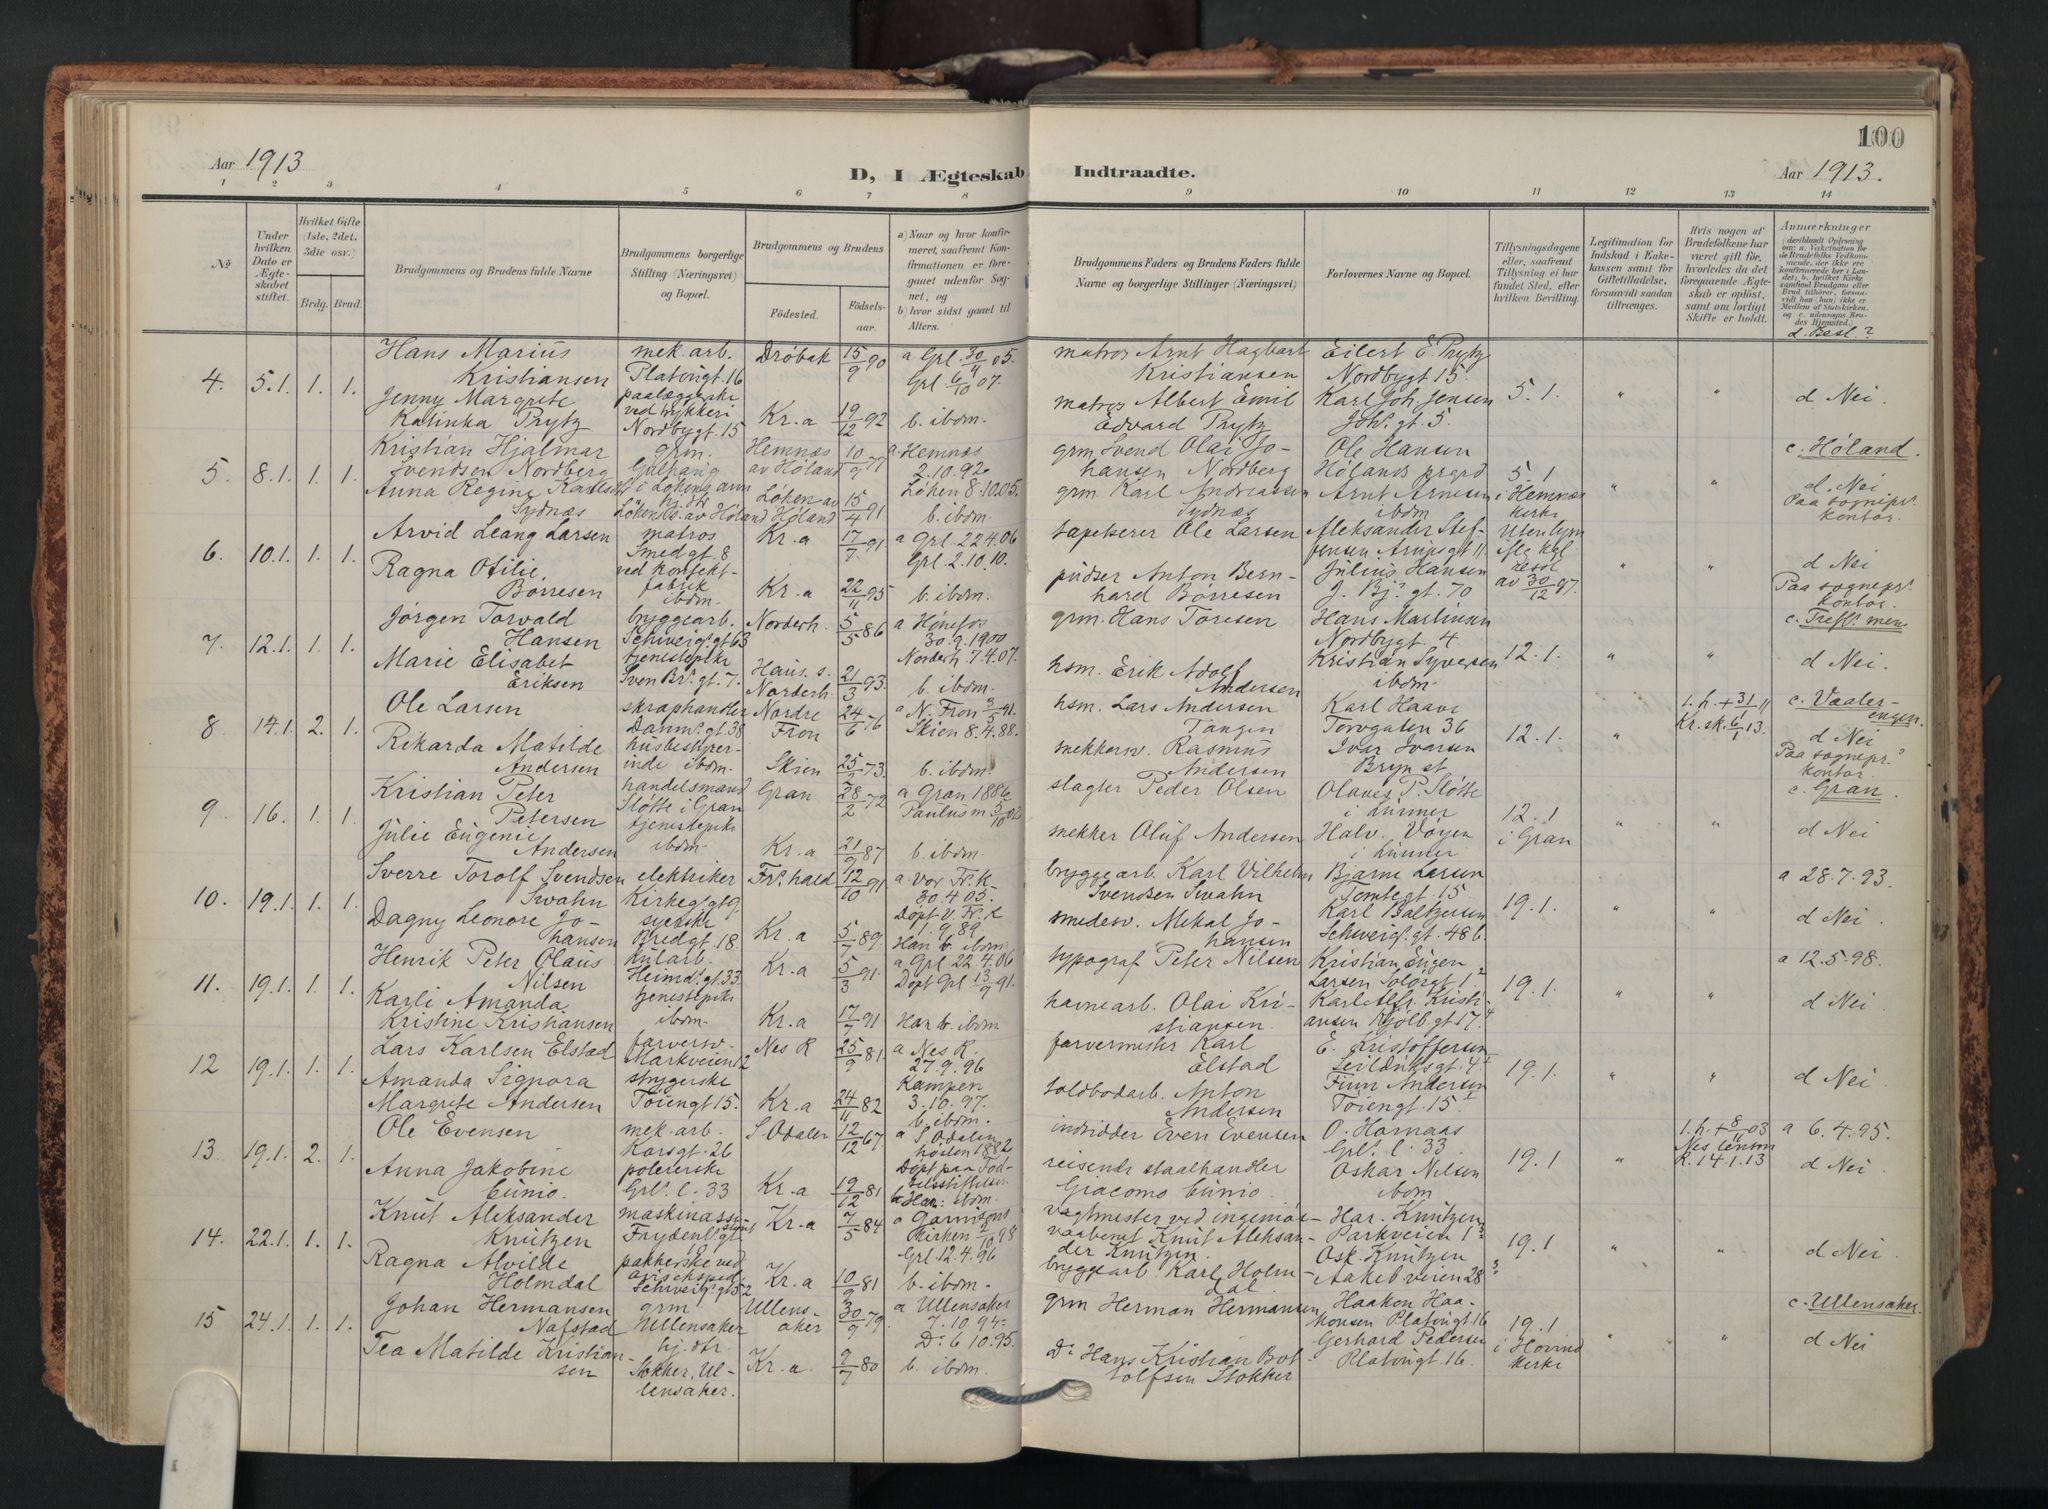 100
Aar 1913
D, I Ægteskab Indtraadte.
Aar 1913.
1 2 3 4 5 6 7 8 9 10 11 12 13 14
№
Under hvilken Dato er Ægteskabet stiftet.
Hvilket Gifte (1ste, 2det, 3die osv.)
Brdg. Brud.
Brudgommens og Brudens fulde Navne
Brudgommens borgerlige Stilling (Næringsvei) og Bopæl.
Brudgommens og Brudens
Födested.
Födselsaar.
a) Naar og hvor konfirmeret, saafremt Konfirmationen er foregaaet udenfor Sognet, og
b) hvor sidst gaaet til Alters.
Brudgommens Faders og Brudens Faders fulde Navne og borgerlige Stillinger (Næringsvei)
Forlovernes Navne og Bopæl.
Tillysningsdagene eller, saafremt Tillysning ei har fundet Sted, efter hvilken Bevilling.
Legitimation for Indskud i Enkekassen samt for Giftetilladelse, forsaavidt saadan tiltrænges.
Hvis nogen af Brudefolkene har været gift før, hvorledes da det foregaaende Ægteskab er opløst, samt om lovligt Skifte er holdt.
Anmærkninger
d. Besl?
4. 5.1. 1. 1.
Hans Marius Kristiansen
mek. arb. Platousgt. 16
Drøbak 15/9 90
a Grl. 30/4 05.
Grl 6/10 07.
matros Arnt Hagbart Kristiansen
Eilert E. Prytz Nordbygt 15.
5.1. " " d Nei.
Jenny Margrete Katinka Prytz
ved trykkeri Nordbygt. 15
Kr.a 19/12 92
b. ibdm.
matros Albert Emil Edvard Prytz
Karl Joh. Jensen Joh. gt. 5.
5. 8.1. 1. 1.
Kristian Hjalmar Svendsen Nordberg
grm.
Hemnæs av Høland 10/9 77
a. Hemnæs 2.10.92
Løken 8.10.05.
grm Svend Olai Johansen Nordberg
Ole Hansen Hølands prgrd
5.1 i Hemnæs kirke
" " c. Høland. d. Nei
Paa sognepr. kontor.
Anna Regine Karlsdtr Sydnæs
Løken av Høland 15/4 91
b. ibdm.
grm Karl Andreassen Sydnæs
Arnt Arnesen ibdm
6. 10.1. 1. 1.
Arvid Leang Larsen
matros Smedgt. 8
Kr.a 17/7 91
a Grl. 22 4.06
Grl. 2.10.10.
tapetserer Ole Larsen
Aleksander Steffensen Arupsgt 11.
av 30/12 97.
" " d Nei
Paa sognepr. kontor.
Ragna Otilie Børresen
ved konfektfabrik ibdm.
Kr.a 22/11 95
b. ibdm.
pudser Anton Bernhard Børresen
Julius Hansen J. Bj. gt. 70
7. 12.1. 1. 1.
Jørgen Torvald Hansen
bryggearb. Schweigs. gt 63
Norderh. 5/5 86
a Hønefos 30.9.1900
Norderh. 7.4.07.
grm. Hans Toresen
Hans Martinsen Nordbygt. 4
12.1. " " d Nei.
Marie Elisabet Eriksen
tjenestepike Sven Br. gt. 7.
Haus. s. Norderh. 21/3 93.
b. ibdm.
hsm. Erik Adolf Andersen
Kristian Syversen ibdm.
8 14.1. 2. 1.
Ole Larsen
skraphandler Danm. gt. 38
Nordre Fron 24/6 76
a N. Fron 3/5 91.
Skien 8.4.88.
hsm. Lars Andersen Tangen
Karl Haave Torvgaten 36
12.1. "
1. h. + 31/1 11
Kr. sk. 6/1 13.
c. Vaalerengen.
d Nei
Paa sognepr. kontor.
Rikarda Matilde Andersen
husbestyrerinde ibdm.
Skien 25/2 73.
b. ibdm.
snekkersv. Rasmus Andersen
Ivar Ivarsen Bryn st
9. 16. 1. 1.
Kristian Peter Petersen
handelsmand Sløtte i Gran
Gran 28/2 72
a Gran 1886
Paulus m 5/10 02
slagter Peder Olsen
Olaves P. Sløtte i Lunner
12.1 i Gran
" " c. Gran. d Nei
Julie Eugenie Andersen
tjenestepike ibdm.
Kr.a 21/9 87
b. ibdm.
snekker Oluf Andersen
Halv. Vøyen i Lunner
10. 19.1. 1. 1.
Sverre Torolf Svendsen Swahn
elektriker Kirkeg. gt 9
Fr. hald 12/10 91
a Vor Fr. K. 30.4.05.
bryggearb. Karl Vilhelm Svendsen Swahn
Bjarne Larsen Tomtegt. 15
19.1. " "
a 28.7.93.
d Nei.
Dagny Leonore Johansen
syerske Bredgt. 18
Kr.a 5/7 89.
Døpt V. Fr. K 1.9.89
Han b. ibdm.
smedesv. Mikal Johansen
Karl Baltzersen Schweig. gt. 48 b.
11. 19.1. 1. 1.
Henrik Peter Olaus Nilsen
kularb. Heimd. gt. 33
Kr.a 5/3 91.
a Grl 22 4.06
Døpt Grl 13/9 91.
typograf Peter Nilsen
Kristian Eugen Larsen Solørgt 1
19.1. " "
a 12.5.98.
d Nei
Karli Amanda Kristine Kristiansen
tjenestepike ibdm.
Kr.a 17/7 91
Han b. ibdm
havnearb. Olai Kristiansen.
Karl Alfr. Kristiansen Kjølb. gt 17.
12 19.1. 1. 1.
Lars Karlsen Elstad
farversv. Markveien 12
Nes R 25/9 81
a Nes R. 27.9.96
Kampen 3.10.97.
farvermester Karl Elstad
E. Kristoffersen Seildugsgt. 4
19.1. " " d Nei
Amanda Signora Margrete Andersen
strygerske Tøiengt 15.
Kr.a 24/11 82
b. ibdm.
toldbodarb. Anton Andersen
Finn Andersen Tøiengt. 15.
13. 19.1. 2. 1.
Ole Evensen
mek. arb. Korsgt. 26
S Odalen 12/12 67
a S. Odalen høsten 1882
inderster Even Evensen
O. Hornaas Grl. l. 33
19.1 "
1. h. + 8/11 03
R. 14.1.13
a 6.4.95.
d Nei.
Anna Jakobine Cunio.
polererske Grl. l. 33
Kr.a 19/12 81
Døpt paa Fødselsstiftelsen
b Han: ibdm.
reisende staalhandler Giacomo Cunio.
Oskar Nilsen ibdm
14. 22.1. 1. 1.
Knut Aleksander Knutzen
maskinassistent Frydenl. gt 8
Kr.a 7/5 84
a Garnisons kirken 2/10 98
Grl 12.4.96
vagtmester ved ingeniørvaabenet Knut Aleksander Knutzen.
Har. Knutzen Parkveien 1
19.1 " " d Nei
Ragna Alvilde Holmdal
pakkerske ved aviseksped. Schweig. gt 52
Kr.a 10/9 81
b. ibdm.
bryggearb. Karl Holmdal
Osk. Knutzen Aakeb. veien 28
15 24.1. 1. 1.
Johan Hermansen Nafstad
grm Ullensaker
Ullensaker 30/9 79.
a Ullensaker 7.10 94
Do 6 10.95.
grm Herman Hermansen
Haakon Haakonsen Platougt 16
19.1 i Hovind kirke
" " c. Ullensaker. d Nei
Tea Matilde Kristiansen
hj. dtr. Stokker, Ullensaker.
Kr.a. 9/7 80
b. ibdm.
Do Hans Kristian Botolfsen Stokker
Gerhard Pedersen Platougt 16.